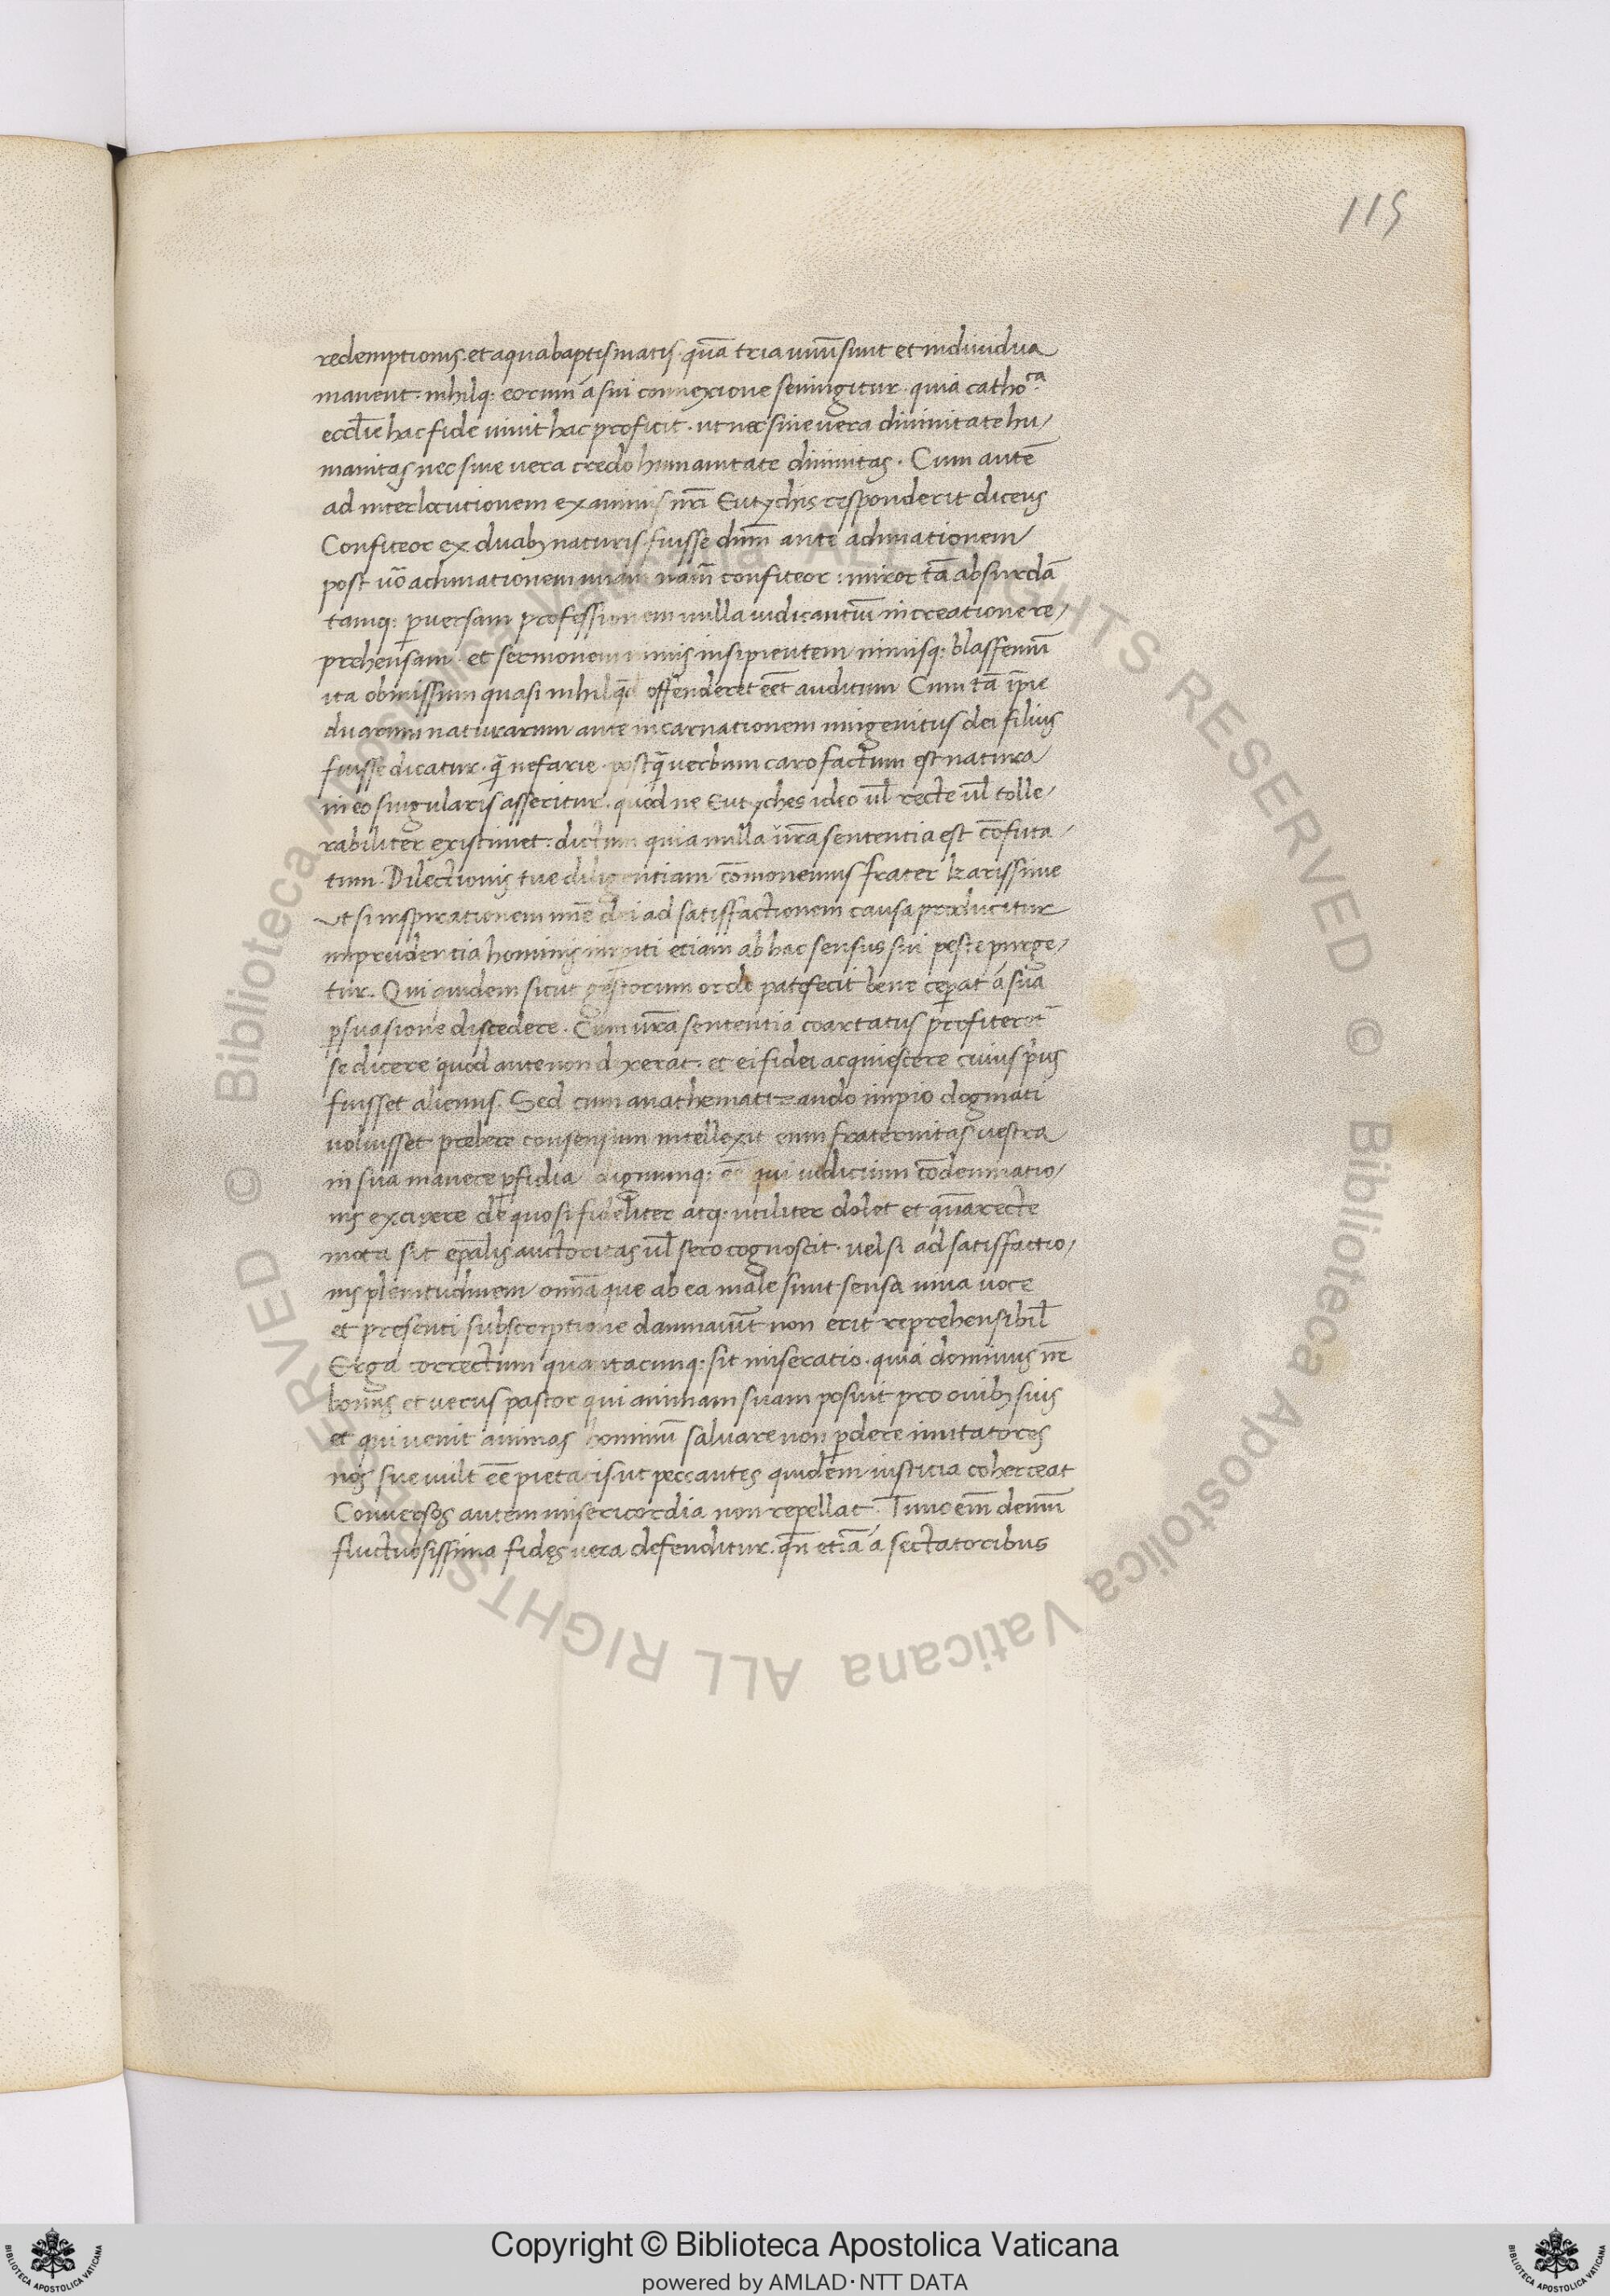 115
redemptionis. et aqua baptismatis. quā tria unū sunt et individua
manent. nihilq; eorum á sui connexione seiungitur. quia cathoᶜᵃ
eccl̄ie hac fide uiuit hac proficit. ut nec sine uera diuinitate hu/
manitas nec sine uera credo humanitate diuinitas. Cum autē
ad interlocutionem examinis nr̄i Eutychis responderit dicens
Confiteor ex duabꝫ naturis fuisse dnm̄ ante adunationem
post uō adunationem unam nām̄ confiteor: miror tā absurdā
tamq; ꝑuersam professionem nulla iudicantiū increatione re/
prehensam. et sermonem nimis insipientem nimisq; blassfemū
ita obmissum quasi nihil qd̄ offenderet eēt auditum Cum tā īpie
duarum naturarum ante incarnationem unigenitus dei filius
fuisse dicatur. qā nefarie. postqā uerbum caro factum est natura
in eo singularis asseritur. quod ne Eutyches ideo ul̄ recte ul̄ tolle/
rabiliter existimet. dictum quia nulla ur̄a sententia est cōfuta/
tum. Dilectionis tue diligentiam cōmonemus frater karissime
Ut si inspirationem mīe dei ad satisfactionem causa producitur
inprudentia hominis inꝑiti etiam ab hac sensus sui peste purge/
tur. Qui quidem sicut gestorum ordo patefecit bene ceperat á sua
ꝑsuasione discedere. Cum ur̄a sententia coartatus profiteret̄
se dicere quod ante non dixerat. et ei fidei acquiescere cuius p̄us
fuisset alienus. Sed cum anathematizando impio dogmati
uoluisset prebere consensum intellexit eum fraternitas uestra
in sua manere ꝑfidia dignumq; eē qui iudicium cōdemnatio/
nis excipere db̄ quo si fideliter atq; utiliter dolet et quā recte
mota sit ep̄alis auctoritas ul̄ sero cognoscit. uel si ad satisfactio/
nis plenitudinem omn̄a que ab ea male sunt sensa uiua uoce
et presenti subscriptione damnauīt non erit reprehensibil̄
Erga correctum quantacunq; sit miseratio. quia dominus nr̄
bonus et uerus pastor qui animam suam posuit pro ouibꝫ suis
et qui uenit animas hominū saluare non ꝑdere imitatores
nos sue uult eē pietatis. ut peccantes quidem iusticia coherceat
Conuersos autem misericordia non repellat. Tunc em̄ demū
fluctuosissima fides uera defenditur. qn̄ etiā á sectatoribus
Copyright © Biblioteca Apostolica Vaticana
powered by AMLAD·NTT DATA
© Biblioteca Apostolica Vaticana ALL RIGHTS RESERVED
© Biblioteca Apostolica Vaticana ALL RIGHTS RESERVED
BIBLIOTECA APOSTOLICA VATICANA
BIBLIOTECA APOSTOLICA VATICANA